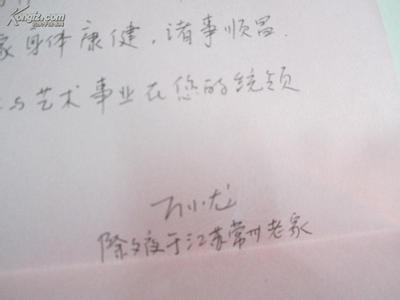 Kongfz.com
家身体康健，诸事顺昌.
与艺术事业在您的统领
小龙
除夕夜于江苏常州老家